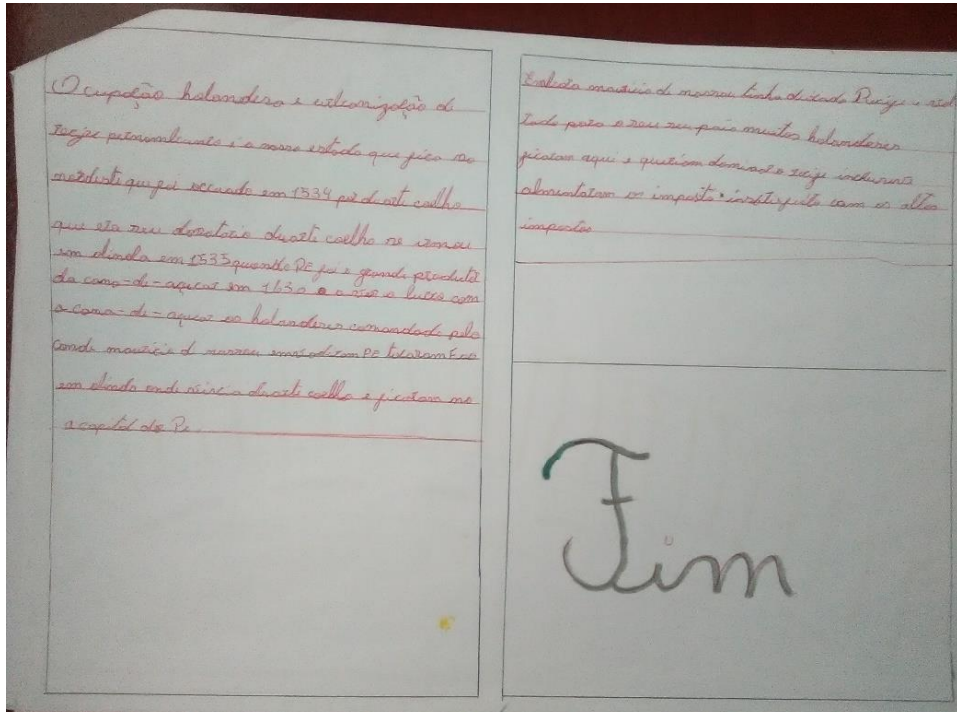 Ocupação holandesa e colonização do
recife pernambuco é o nosso estado que fica no
nordeste que foi ocuado em 1534 por duarte coelho
que era seu donatario duarte coelho se
em olinda em 1535 quando PE foi o grande produtor
da cana-de-açucar em 1630 o lucro com
a cana-de-açucar os holandeses comandado pelo
Conde mauricio d nassau PE
em olinda onde vivia duarte coelho e ficaram no
a capital de Pe
mauricio d nassau tinha d
tado para o seu pais muitos holandeses
ficaram aqui e queriam domina o recife
almentaram os imposto com os altos
impostos
Fim